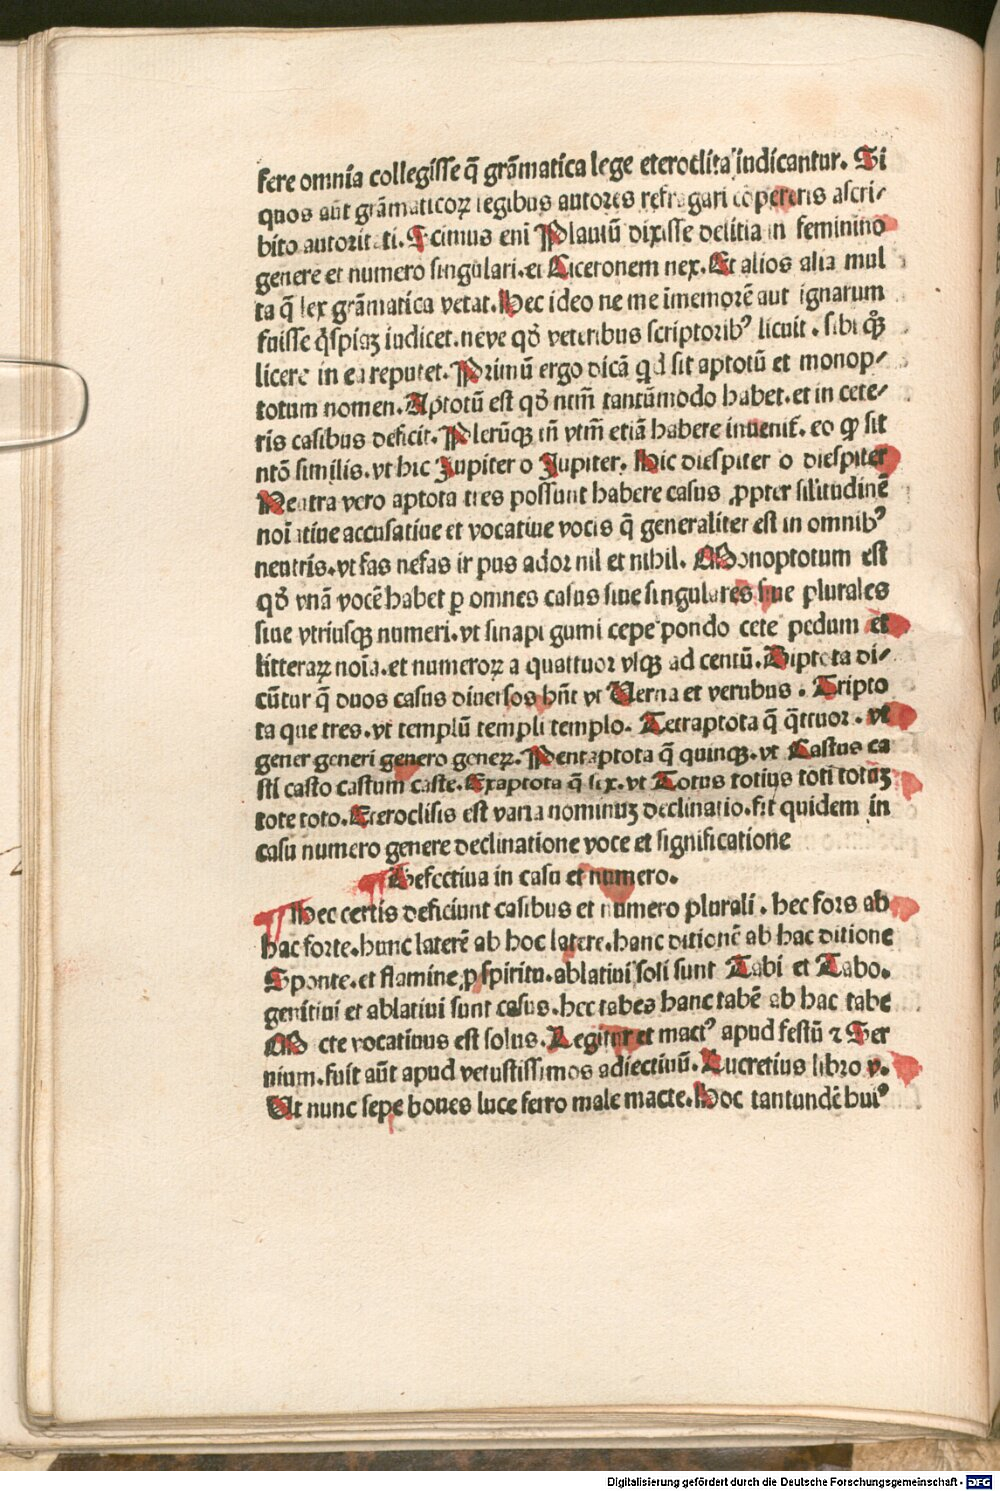 fere omnia collegisse q̃ grãmatica lege eteroclita iudicantur. Si
quos aũt grãmaticoꝝ legibus autores refragari cõpereris ascri⸗
bito autoritati. Scimus eni Plautũ dixisse delitia in feminino
genere et numero singulari. et Ciceronem nex. Et alios alia mul
ta q̃ lex grãmatica vetat. Hec ideo ne me ĩmemorẽ aut ignarum
fuisse q̃spiaꝫ iudicet. neve qđ veteribus scriptoribꝰ licuit . sibi qͦꝫ
licere in ea reputet. Primũ ergo dicã qd sit aptotũ et monop⸗
totum nomen. Aptotũ est qđ ntm̃ tantũmodo habet. et in cete⸗
ris casibus deficit. Plerũqꝫ tñ vtm̃ etiã habere inuenit̃. eo ꝙ sit
ntõ similis. vt hic Jupiter o Jupiter. Hic diespiter o diespiter
Neutra vero aptota tres possunt habere casus ꝓpter silĩtudinẽ
noĩatiue accusatiue et vocatiue vocis q̃ generaliter est in omnibꝰ
neutris. vt fas nefas ir pus ador nil et nihil. Monoptotum est
qđ vnã vocẽ habet ꝑ omnes casus siue singulares siue plurales
siue vtriusqꝫ numeri. vt sinapi gumi cepe pondo cete pedum et
litteraꝝ noĩa. et numeroꝝ a quattuor vsqꝫ ad centũ. Diptota di⸗
cũtur q̃ duos casus diuersos hñt vt Verna et verubus . Tripto
ta que tres. vt templũ templi templo. Tetraptota q̃ q̃ttuor . vt
gener generi genero geneꝝ. Pentaptota q̃ quinqꝫ. vt Castus ca
sti casto castum caste. Exaptota q̃ sex. vt Totus totius toti totuꝫ
tote toto. Eteroclisis est varia nominuꝫ declinatio. fit quidem in
casu numero genere declinatione voce et significatione
Defectiua in casu et numero.
Hec certis deficiunt casibus et numero plurali . hec fors ab
hac forte. hunc laterẽ ab hoc latere. hanc ditionẽ ab hac ditione
Sponte. et flamine ꝓ spiritu. ablatiui soli sunt Tabi et Tabo.
genitiui et ablatiui sunt casus. hec tabes hanc tabẽ ab hac tabe
Macte vocatiuus est solus. Legitur et mactꝰ apud festũ ⁊ Ser
uium. fuit aũt apud vetustissimos adiectiuũ. Lucretius libro v.
Ut nunc sepe boues luce ferro male macte. Hoc tantundẽ huiꝰ
Digitalisierung gefördert durch die Deutsche Forschungsgemeinschaft - DFG